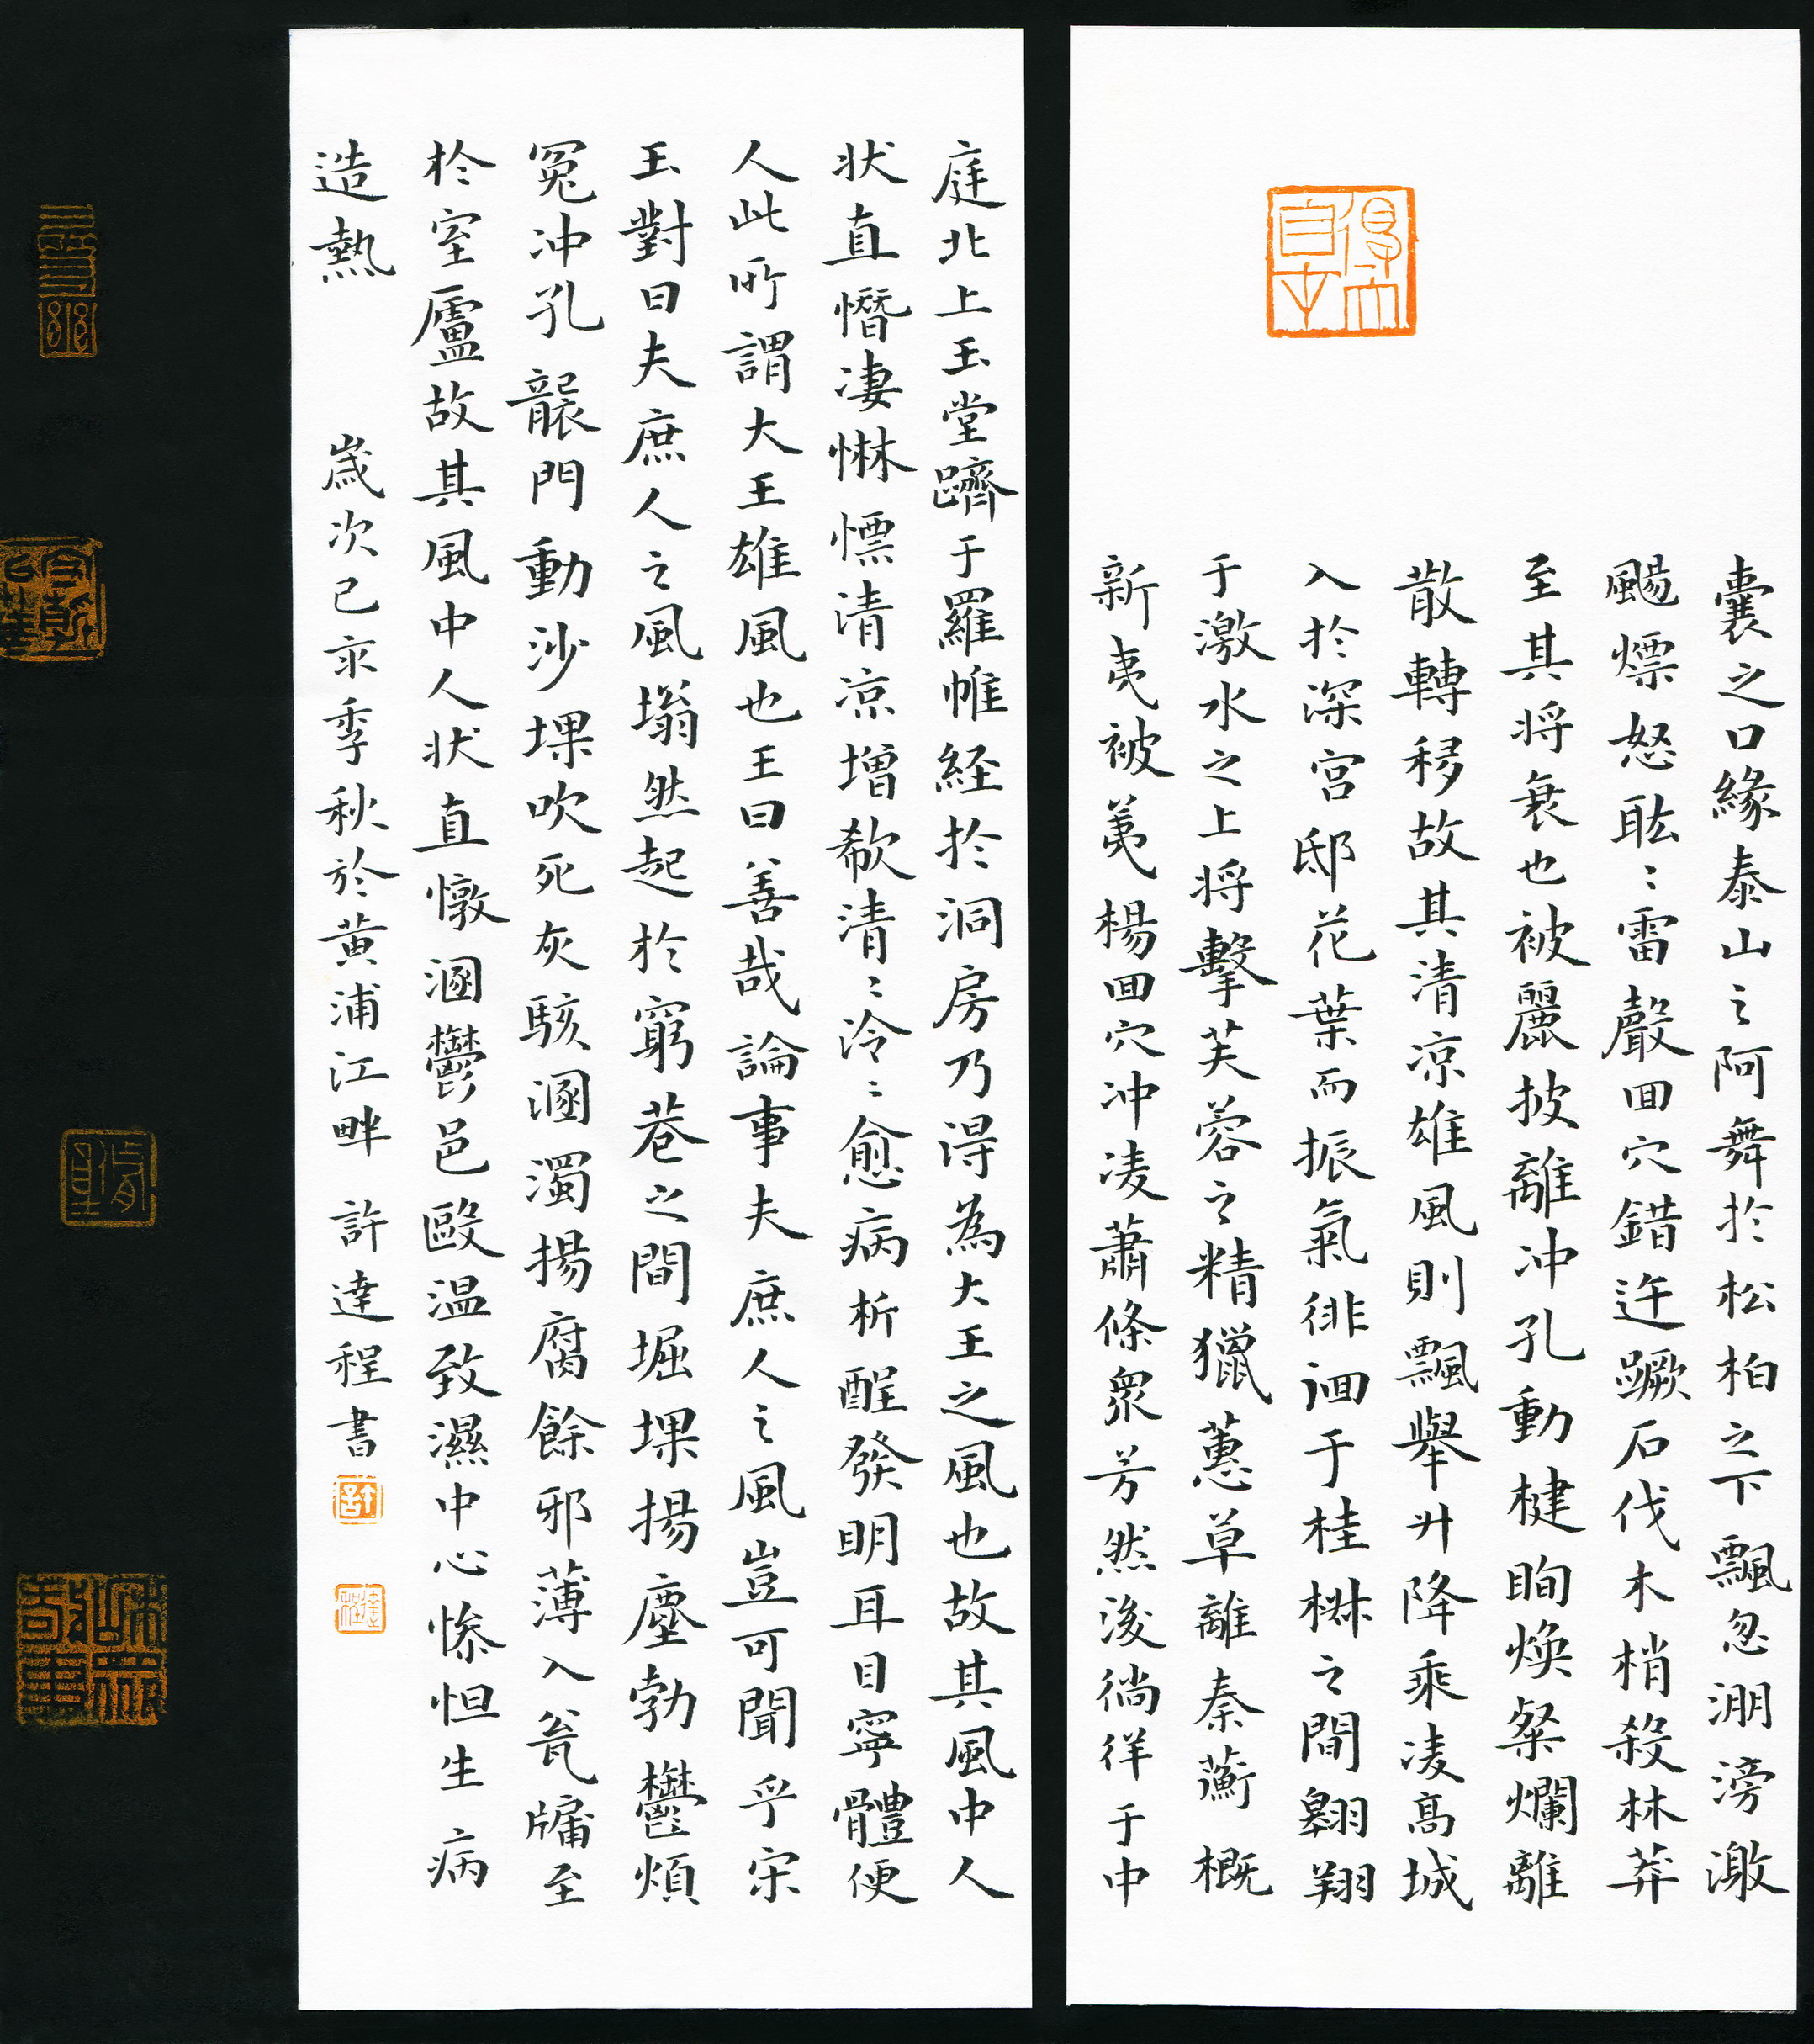 囊之口緣泰山之阿舞於松柏之下飄忽淜滂激
颺熛怒耾〻雷聲回穴錯迕蹶石伐木梢殺林莽
至其將衰也被麗披離冲孔動楗眴煥粲爛離
散轉移故其清凉雄風則飄舉升降乘凌高城
入於深宮邸花葉而振氣徘徊于桂椒之間翱翔
于激水之上將擊芙蓉之精獵蕙草離秦蘅概
新夷被荑楊回穴冲凌蕭條衆芳然後徜徉于中
庭北上玉堂躋于羅帷経於洞房乃得為大王之風也故其風中人
狀直憯凄惏慄清凉增欷清〻泠〻愈病析酲發明耳目寧體便
人此所謂大王雄風也王曰善哉論事夫庶人之風豈可聞乎宋
玉對曰夫庶人之風塕然起於窮巷之間堀堁揚塵勃鬱煩
冤冲孔襲門動沙堁吹死灰駭溷濁揚腐餘邪薄入瓮牖至
於室廬故其風中人狀直憞溷鬱邑毆温致濕中心慘怛生病
造熱
歲次己亥季秋於黄浦江畔 許達程書
許
達程